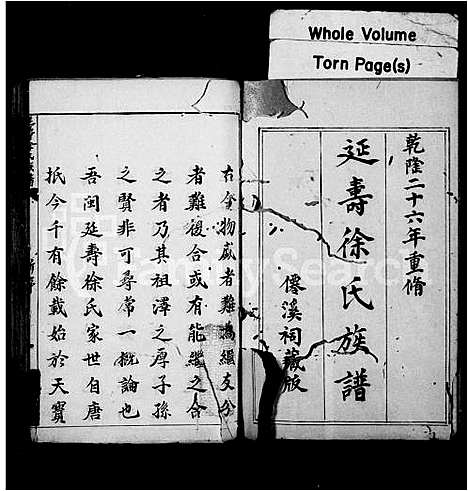 Whole Volume
Torn Page(s)
乾隆二十六年重脩
延壽徐氏族譜
僊溪祠藏版
古今物盛者難為繼支分
者難復合或有能繼之合
之者乃其祖澤之厚子孫
之賢非可尋常一概論也
吾閩延壽徐氏家世自唐
抵今千有餘載始於天寶
FamilySearch